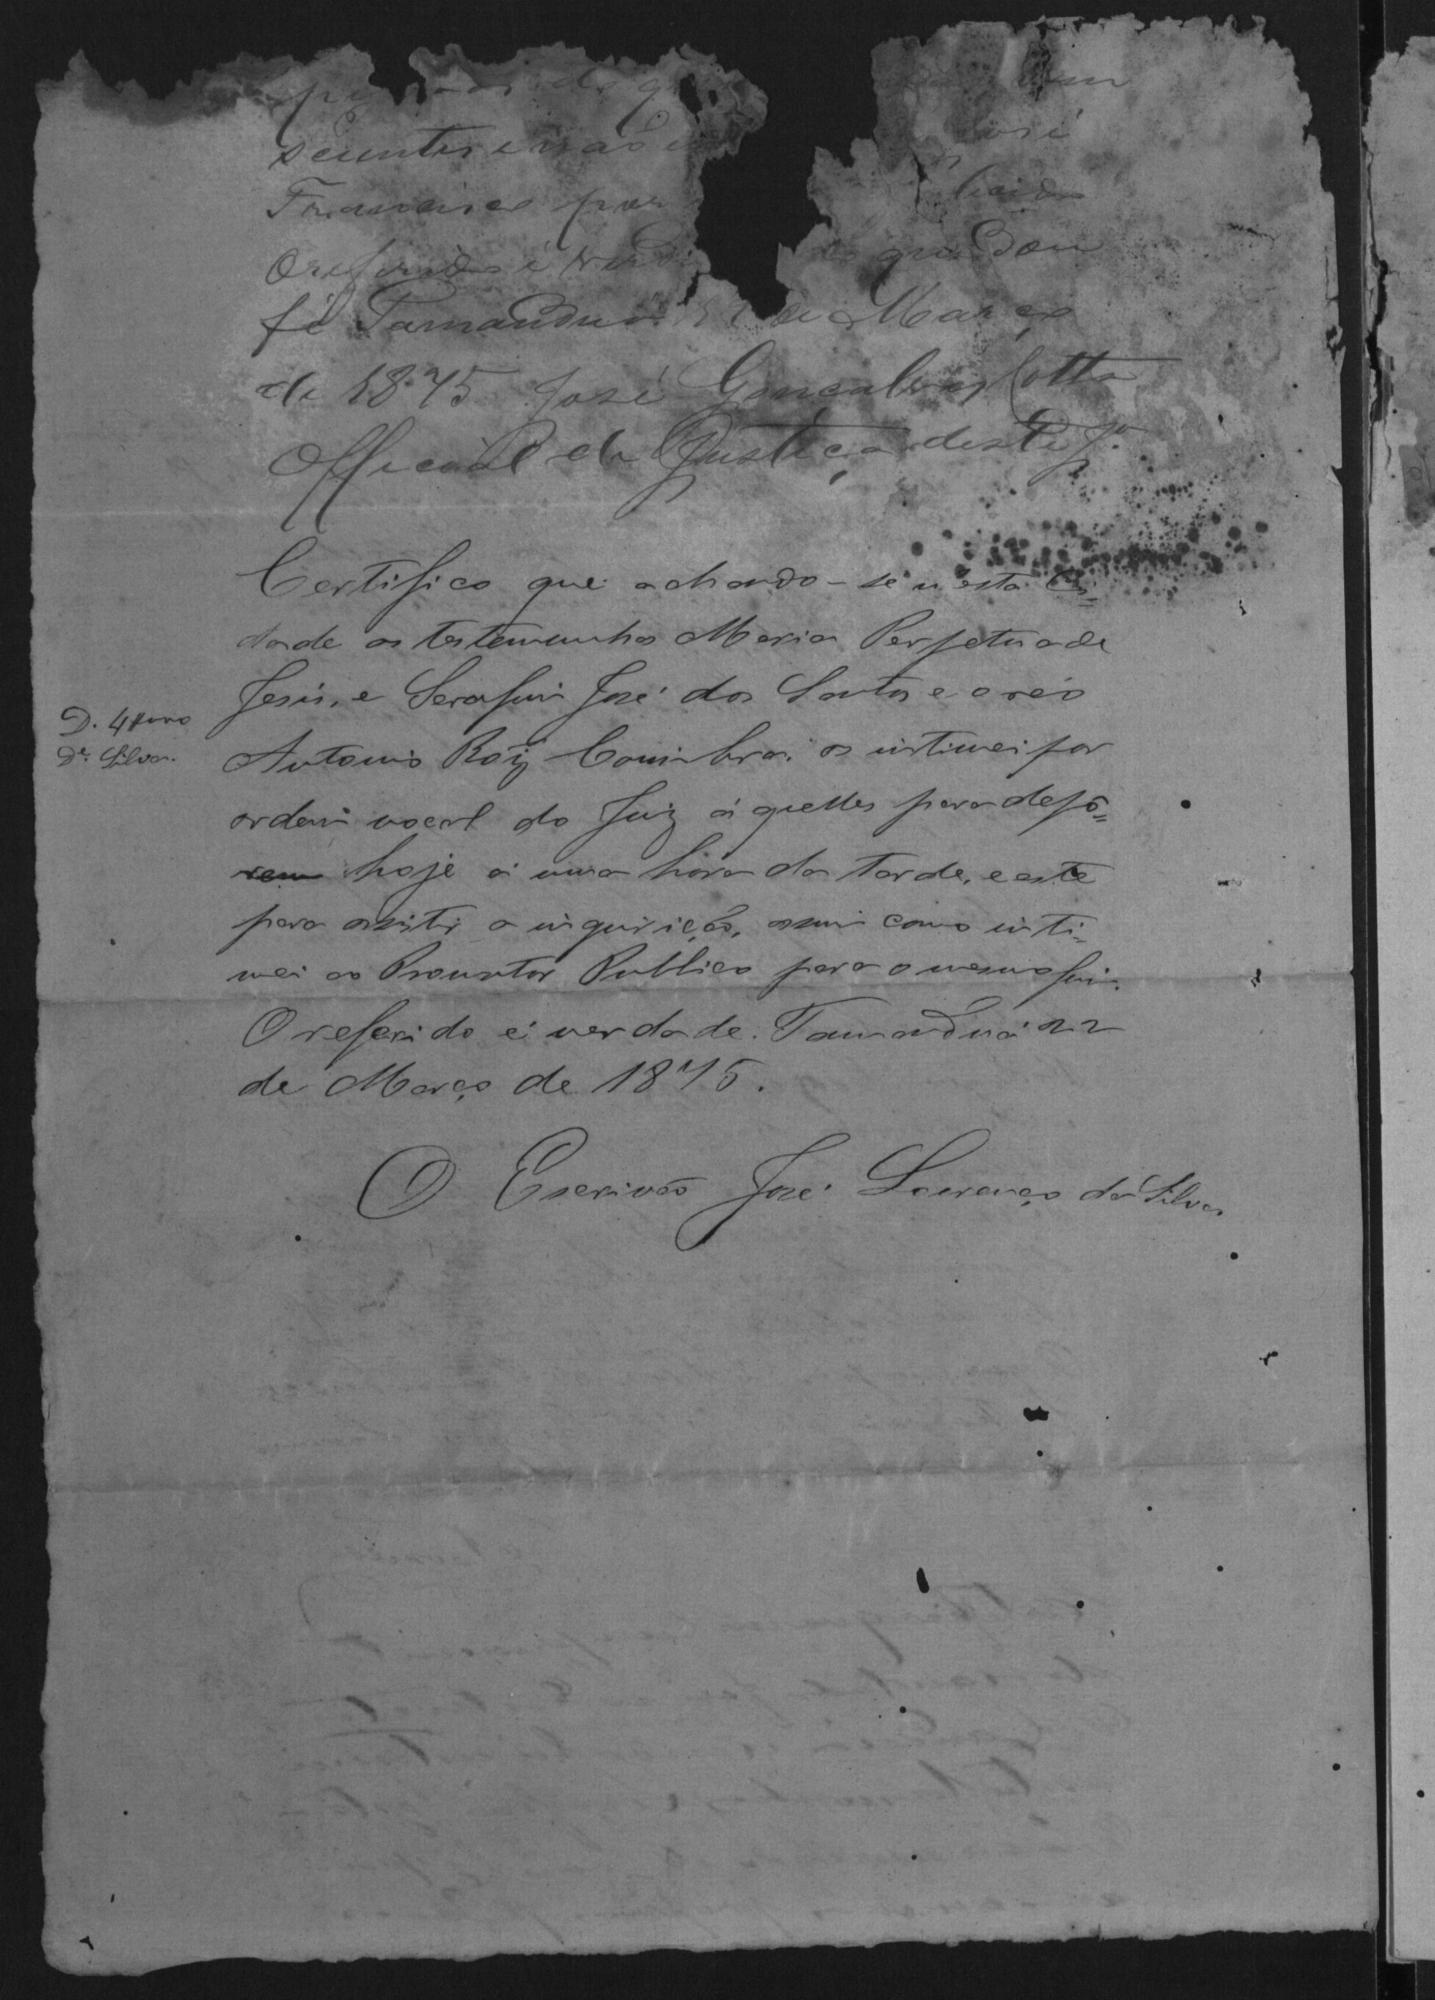 scientes e não
José
Francisco por
O referido é verd que dou
fé Tamanduá de Março
de 1875 José Gonçalves Cotta
Official de Justiça deste J.º
Certifico que achando-se n'esta Ci=
dade as testemunhas Maria Perpetua de
Jesus, e Serafim José dos Santos e o réo
D. 4
Dr. Silva.
Antonio Roiz Coimbra, os intimei por
ordem vocal do Juiz áquelles para depô=
rem hoje á uma hóra da tarde, e este
para assistir a inquirição, assim como inti=
mei ao Promotor Publico para o mesmo fim.
O referido é verdade. Tamanduá 22
de Março de 1875.
O Escrivão José Lourenço da Silva